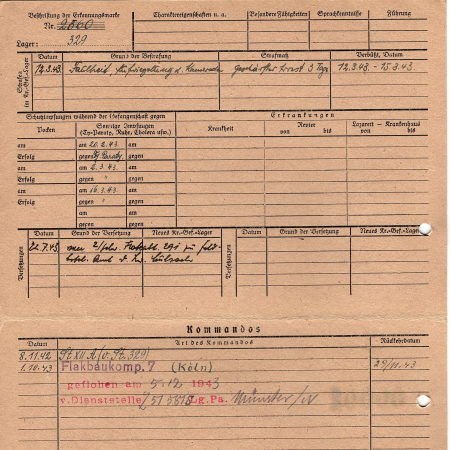 Beschriftung der Erkennungsmarke
Nr.
Lager: 329
Charaktereigenschaften u. a.
Besondere Fähigkeiten
Sprachkenntnisse
Führung
Strafen im Kr.-Gef.-Lager
Datum
Grund der Bestrafung
Strafmaß
Verbüßt, Datum
12.3.43. Faulheit Aufwiegelung d. Kameraden geschärfter Arrest 3 Tage 12.3.43. - 15.3.43.
Schutzimpfungen während der Gefangenschaft gegen
Erkrankungen
Pocken
Sonstige Impfungen
(Ty-Paraty, Ruhr, Cholera usw.)
Krankheit
Revier
von bis
Lazarett - Krankenhaus
von bis
am am 20.2.43.
Erfolg gegen Ty. Paraty. gegen
am am 2.3.43.
gegen gegen "
am am 16.3.43.
Erfolg gegen " gegen
am am
gegen gegen
Versetzungen
Datum
Grund der Versetzung
Neues Kr.-Gef.-Lager
Versetzungen
Datum
Grund der Versetzung
Neues Kr.-Gef.-Lager
22.7.43.
Kommandos
Datum
Art des Kommandos
Rückkehrdatum
8.11.42 St XII A (v. St. 329)
1.10.43 Flakbaukomp. 7 (Köln) 29/11.43
geflohen am 5.12 1943
v. Dienststelle Lg.Pa. Münster/W